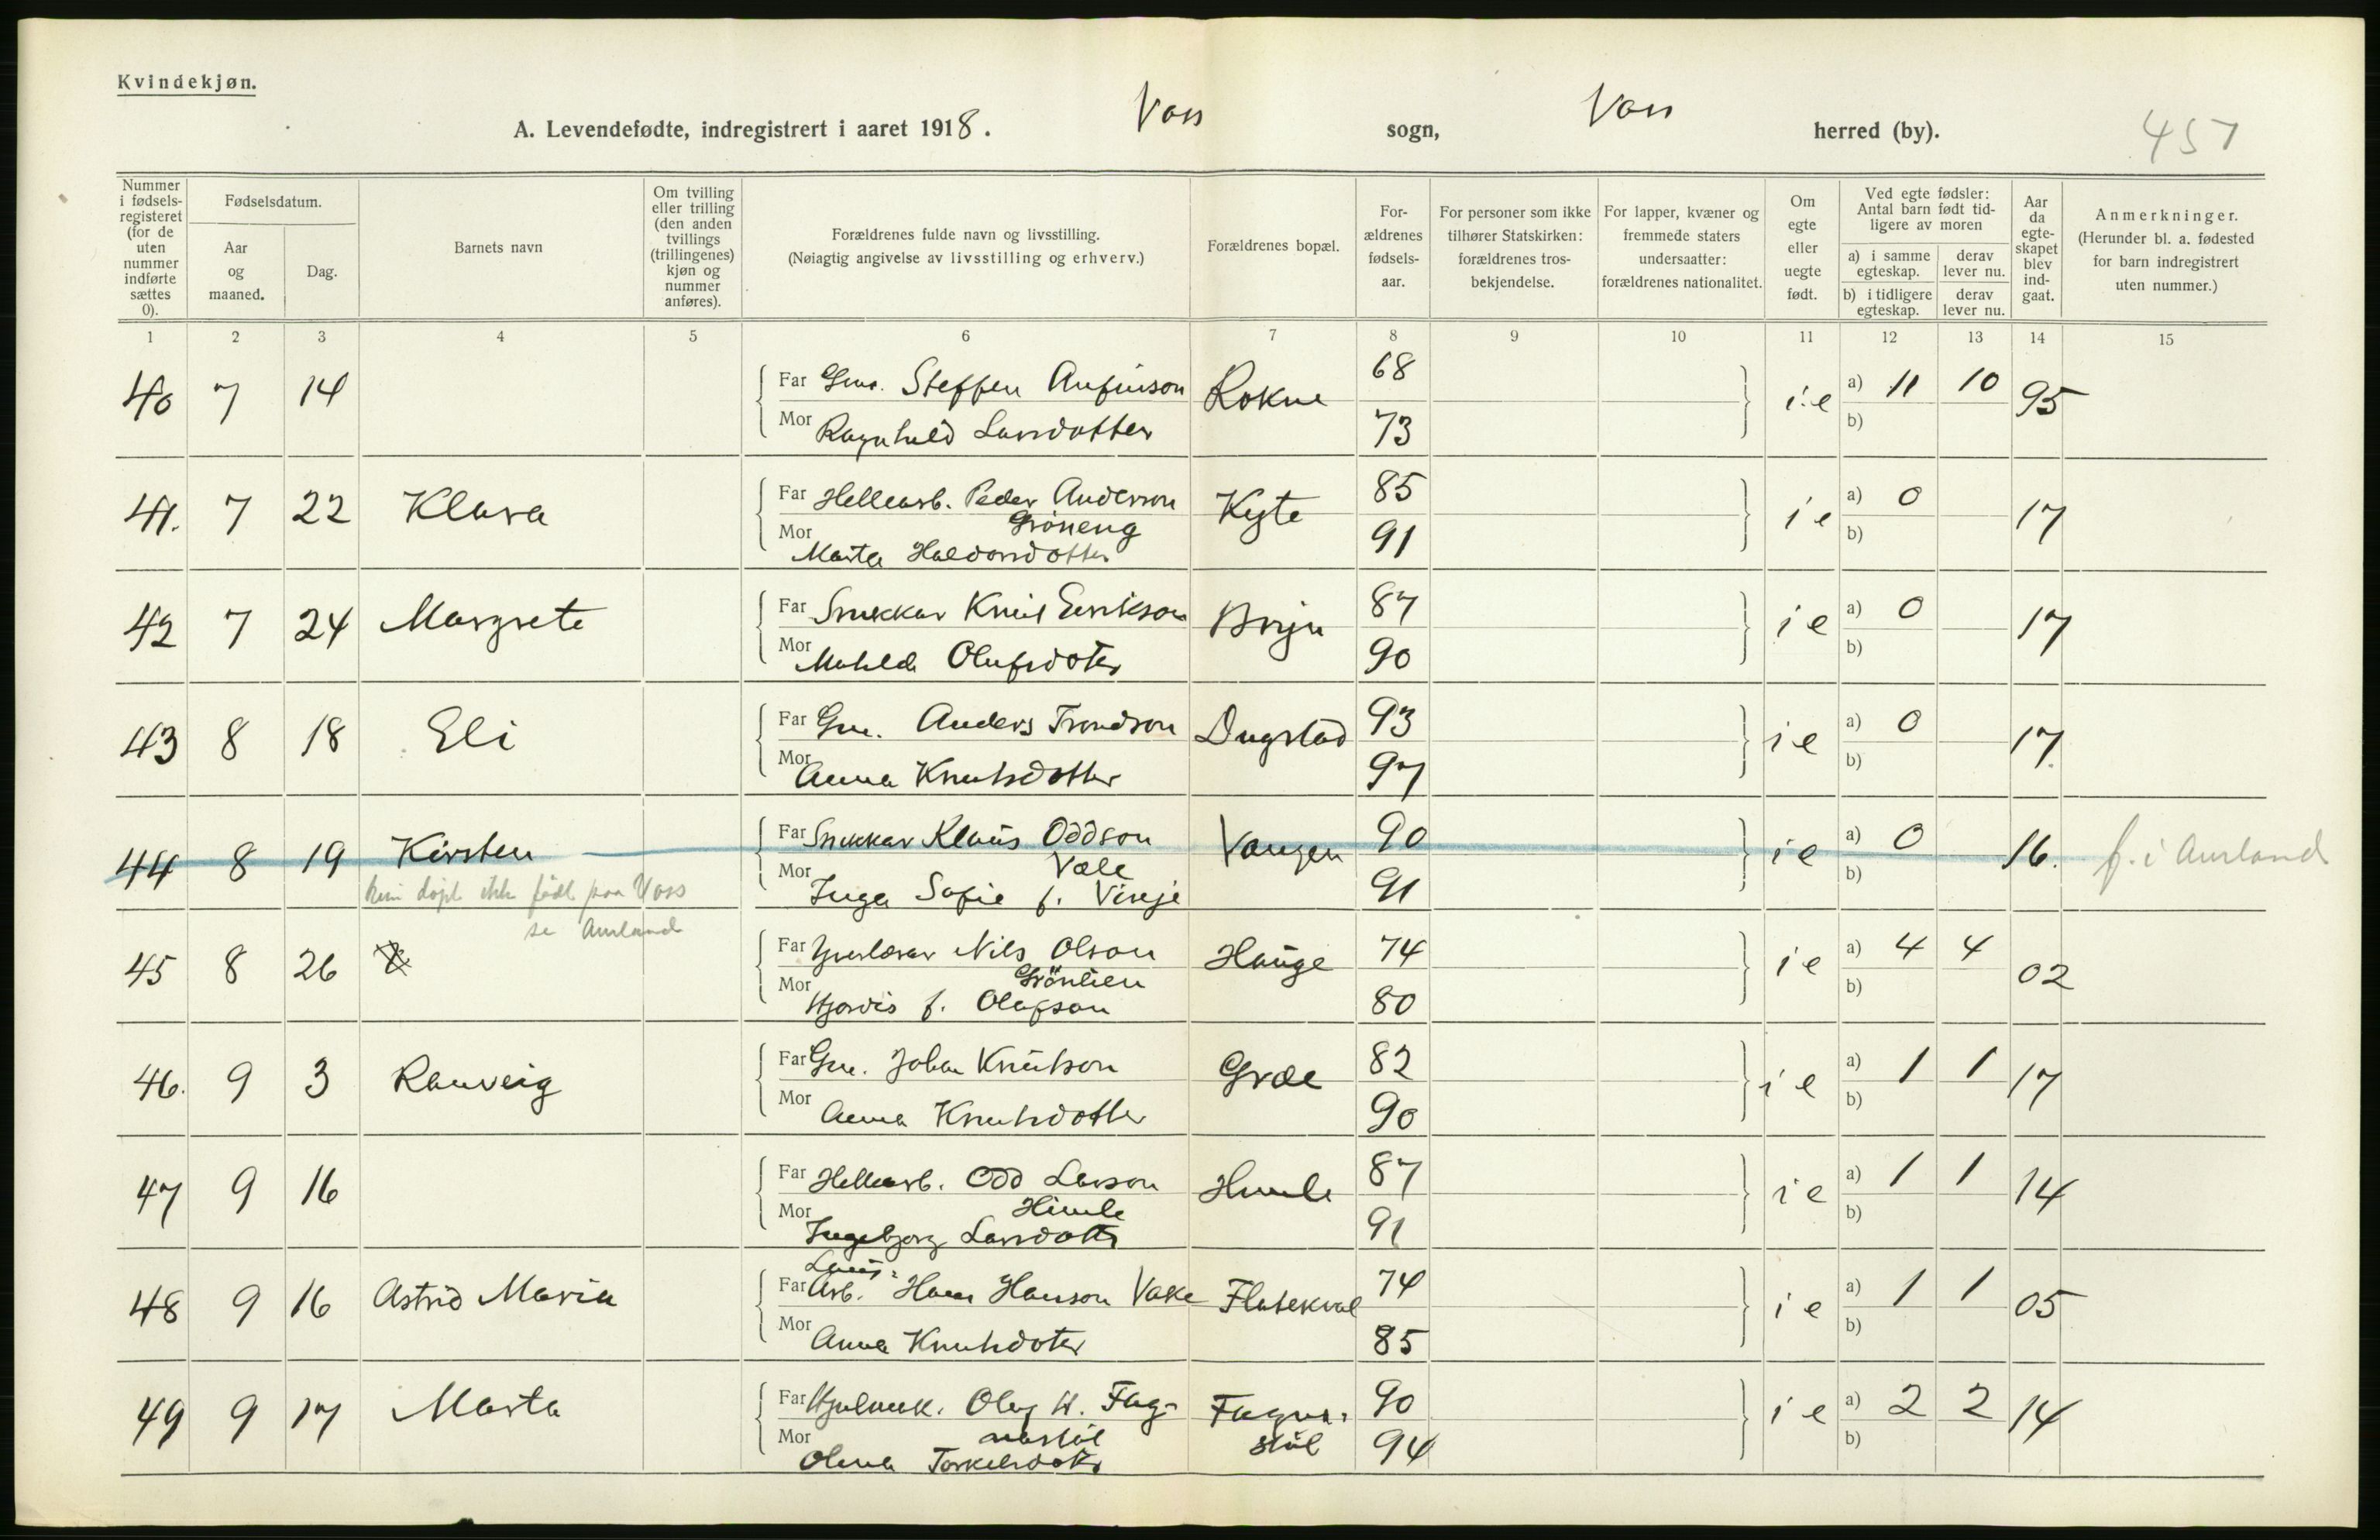 Kvindekjøn.
A. Levendefødte, indregistrert i aaret 1918. Voss sogn, Voss herred (by). 457
Nummer i fødselsregisteret (for de uten nummer indførte sættes 0).
Fødselsdatum.
Aar og maaned.
Dag.
Barnets navn
Om tvilling eller trilling (den anden tvillings (trillingenes) kjøn og nummer anføres).
Forældrenes fulde navn og livsstilling.
(Nøiagtig angivelse av livsstilling og erhverv.)
Forældrenes bopæl.
Forældrenes fødselsaar.
For personer som ikke tilhører Statskirken: forældrenes trosbekjendelse.
For lapper, kvæner og fremmede staters undersaatter: forældrenes nationalitet.
Om egte eller uegte født.
Ved egte fødsler: Antal barn født tidligere av moren
a) i samme egteskap. derav lever nu.
b) i tidligere egteskap. derav lever nu.
Aar da egteskapet blev indgaat.
Anmerkninger.
(Herunder bl. a. fødested for barn indregistrert uten nummer.)
1 2 3 4 5 6 7 8 9 10 11 12 13 14 15
40 7 14 Far Steffen Anfinson Rokne 68 i e a) 11 10 95
Mor Ragnhild Larsdotter 73 b)
41. 7 22 Klara Far Hellearb. Peder Anderson Kyte 85 i e a) 0 17
Grøneng
Mor Marta Haldorsdotter 91 b)
42 7 24 Margrete Far Snekkar Knut Eirikson 87 i e a) 0 17
Mor Olufsdoter 90 b)
43 8 18 Eli Far Anders Trondson Dugstad 93 i e a) 0 17.
Mor Anna Knutsdotter 97 b)
44 8 19 Kirsten Far Snekkar Klaus Oddson Vangen 90 i e a) 0 16. f. i Aurland
Væle
Mor Inga Sofie f. Vinje 91 b)
kun døpt ikke født paa Voss
se Aurland
45 8 26 Far Nils Olson Hauge 74 i e a) 4 4 02
Grönlien
Mor Hjørdis f. Olafson 80 b)
46. 9 3 Ranveig Far Johan Knutson Græe 82 i e a) 1 1 17
Mor Anna Knutsdotter 90 b)
47 9 16 Far Hellearb. Odd Larson Himle 87 i e a) 1 1 14
Himle
Mor Ingebjørg Larsdotter 91 b)
48 9 16 Astrid Maria Far Arb. Hans Hanson Vake Flatekval 74 i e a) 1 1 05
Mor Anna Knutsdoter 85 b)
49 9 17 Marta Far Hjulmek. Olav H. Fag- Fagna- 90 i e a) 2 2 14
nastöl støl
Mor Olina Torkelsdoter 94 b)